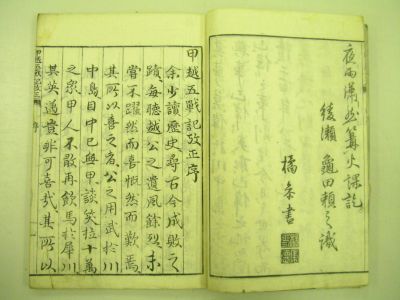 夜雨瀟然篝火課訖
綾瀬 龜田頼之識
橘 書
甲越五戰記攷正序
余少讀歷史尋古今成敗之
蹟每聽越公之遺風餘烈未
嘗不躍然而喜慨然而歎焉
其所以喜之者公之用武於川
中島目中已無甲談笑拉十萬
之衆甲人不敢再飲馬於犀川
其英邁豈非可喜哉其所以